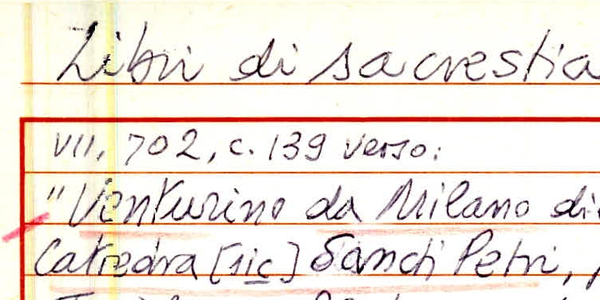 Libri di sacrestia
VII, 702, c. 139 verso:
"Venturino da Milano di
Catredra [sic] Sancti Petri,